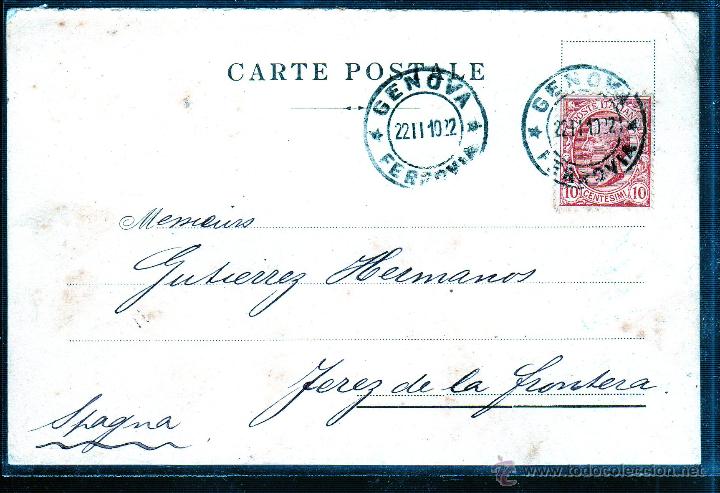 CARTE POSTALE
GENOVA
22 II 10 22
FERROVIA
GENOVA
22 II 10 22
FERROVIA
POSTE
10 CENTESIMI 10
Messieurs
Gutierrez Hermanos
Jerez de la frontera
Spagna
www.todocoleccion.net